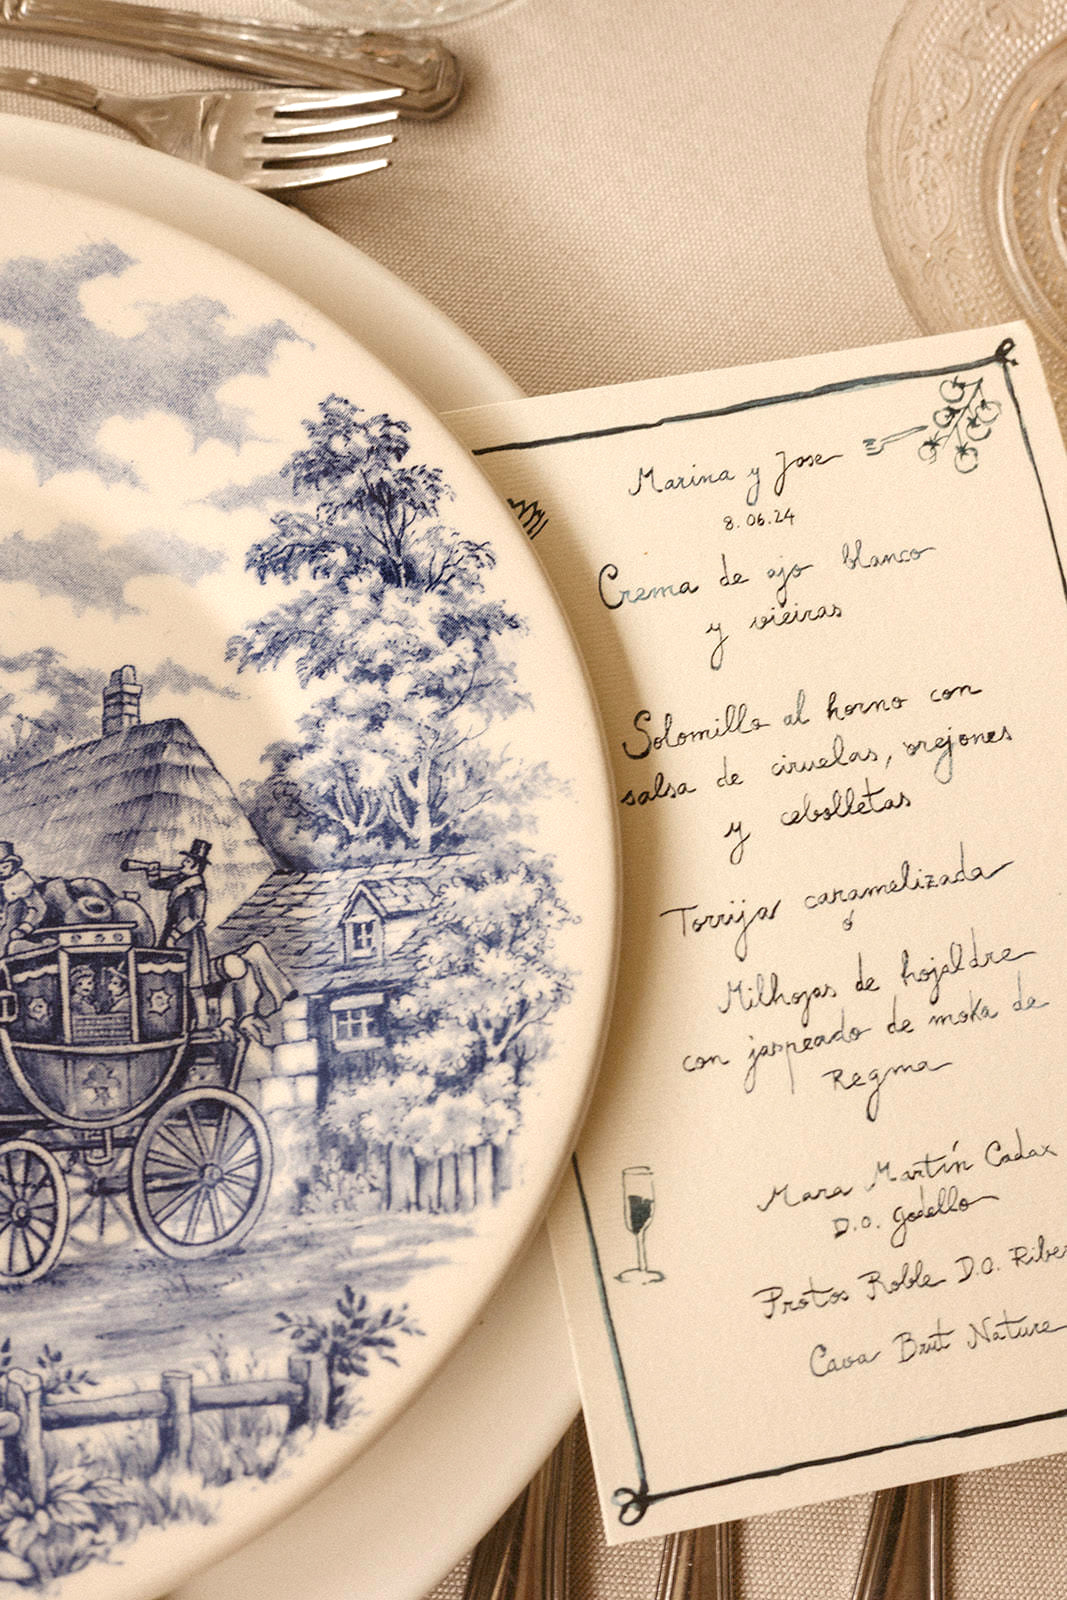 Marina y Jose
8.06.24
Crema de ajo blanco
y vieiras
Solomillo al horno con
salsa de ciruelas, orejones
y cebolletas
Torrija caramelizada
ó
Milhojas de hojaldre
con jaspeado de moka de
Regma
Mara Martín Codax
D.O. Godello
Protos Roble D.O. Ribe
Cava Brut Nature